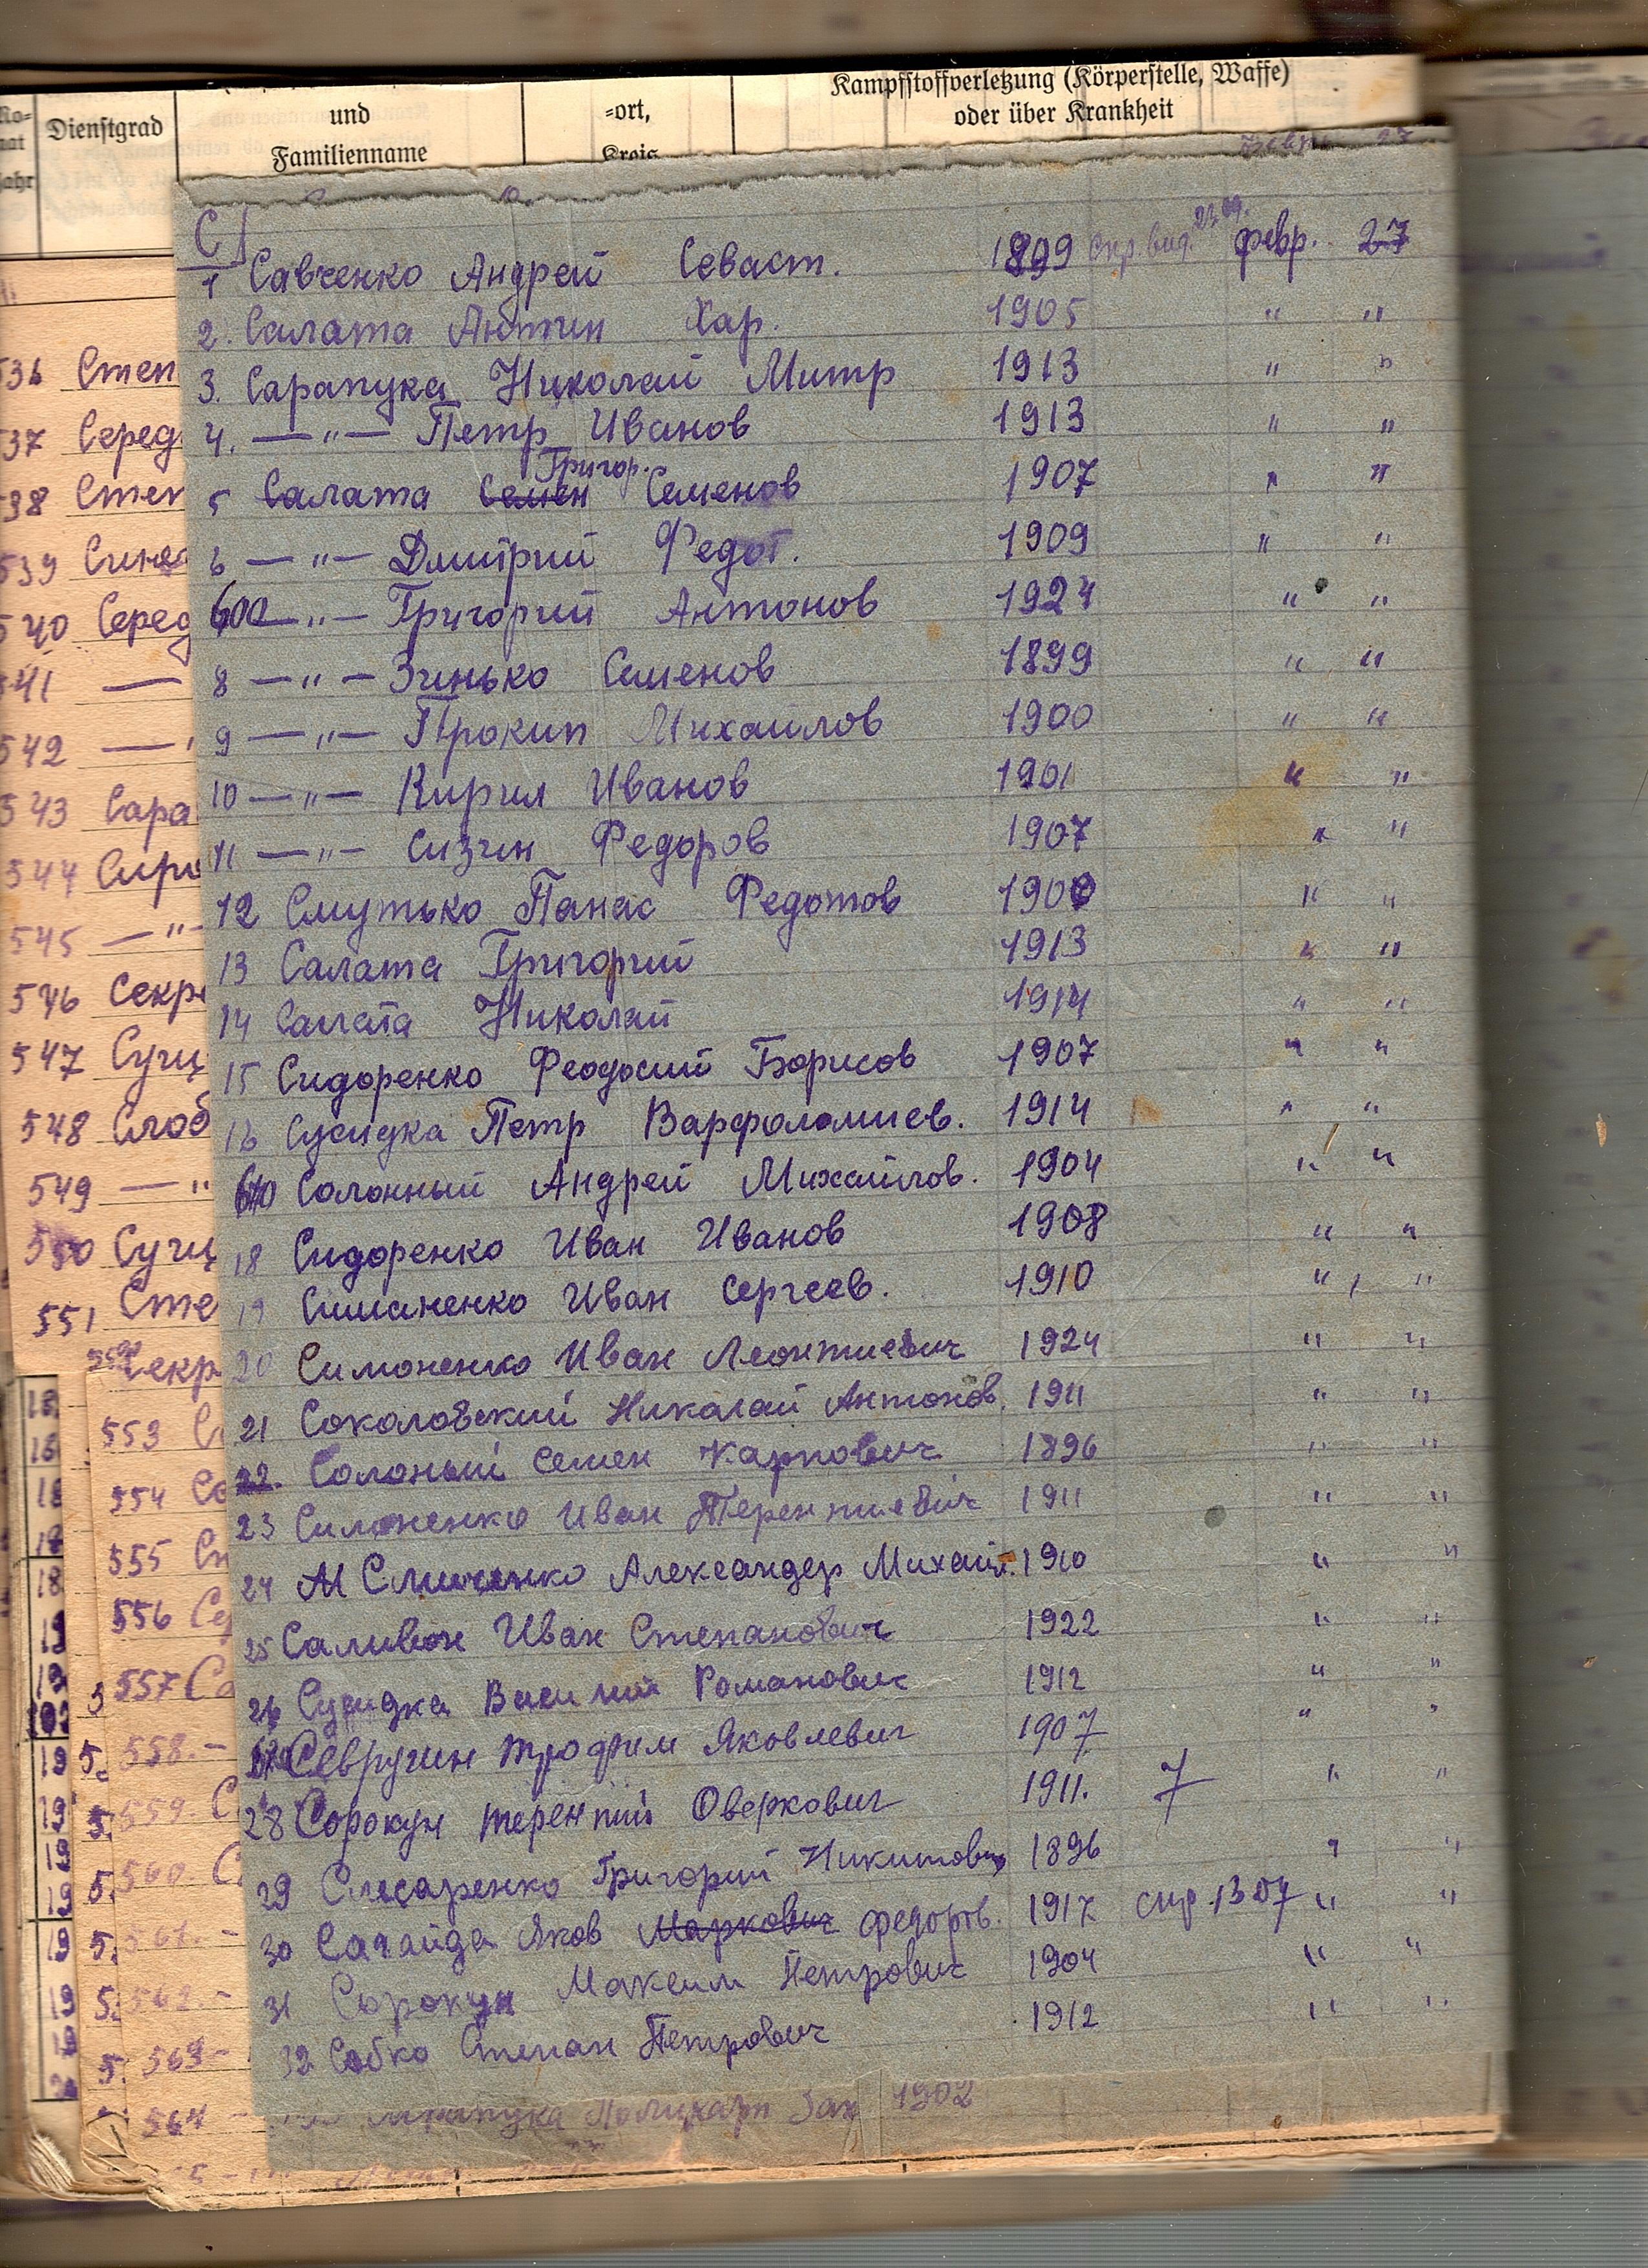 Kampfstoffverletzung (Körperstelle, Waffe)
oder über Krankheit
Dienstgrad
und
Familienname
=ort,
Kreis
С
1 Савченко Андрей Севаст. 1899 февр. 27
2. Салата Антин Хар. 1905 " "
3. Сарапука Николай Митр 1913 " "
4. —"— Петр Иванов 1913 " "
Григор.
5 Салата Семен Семенов 1907 " "
6 —"— Дмитрий Федот. 1909 " "
600 —"— Григорий Антонов 1924 " "
8 —"— Зинько Семенов 1899 " "
9 —"— Прокип Михайлов 1900 " "
10 —"— Кирил Иванов 1901 " "
11 —"— Сизин Федоров 1907 " "
12 Смутько Панас Федотов 1900 " "
13 Салата Григорий 1913 " "
14 Салата Николай 1914 " "
15 Сидоренко Феодосий Борисов 1907 " "
16 Сусидка Петр Варфоломиев. 1914 " "
610 Солонный Андрей Михайлов. 1904 " "
18 Сидоренко Иван Иванов 1908 " "
19 Симоненко Иван Сергеев. 1910 " "
20 Симоненко Иван Леонтиевич 1924 " "
21 Соколовский Николай Антонов. 1911 " "
22. Солоный Семен Карпович 1896 " "
23 Симоненко Иван Терентиевич 1911 " "
24 Александер Михайл. 1910 " "
25 Саливон Иван Степанович 1922 " "
26 Сусидка Василий Романович 1912 " "
Севругин Трофим Яковлевич 1907 " "
28 Сорокун Терентий Оверкович 1911. 7 " "
29 Слесаренко Григорий Никитович 1896 " "
30 Сагайда Яков Маркович Федоров. 1917 " "
31 Сорокун Максим Петрович 1904 " "
32 Собко Степан Петрович 1912 " "
1902
Степ
537 Серед
538 Степ
539 Синя
540 Серед
541 —
542 —"
543 Сара
544 Сиро
545 —"—
546 Секре
547 Сущ
548 Слоб
549 —"
550 Сущ
551 Сте
Секр
553
554 Со
555
556
557 Са
558. —
559. С
560. С
563 —
564 —